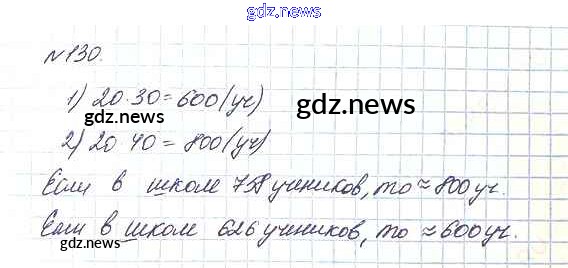 gdz.news
№130.
1) 20·30=600(уч)
gdz.news
2) 20 40 = 800(уч)
gdz.news
Если в школе 758 учеников, то ≈ 800 уч.
Если в школе 626 учеников, то ≈ 600 уч.
gdz.news